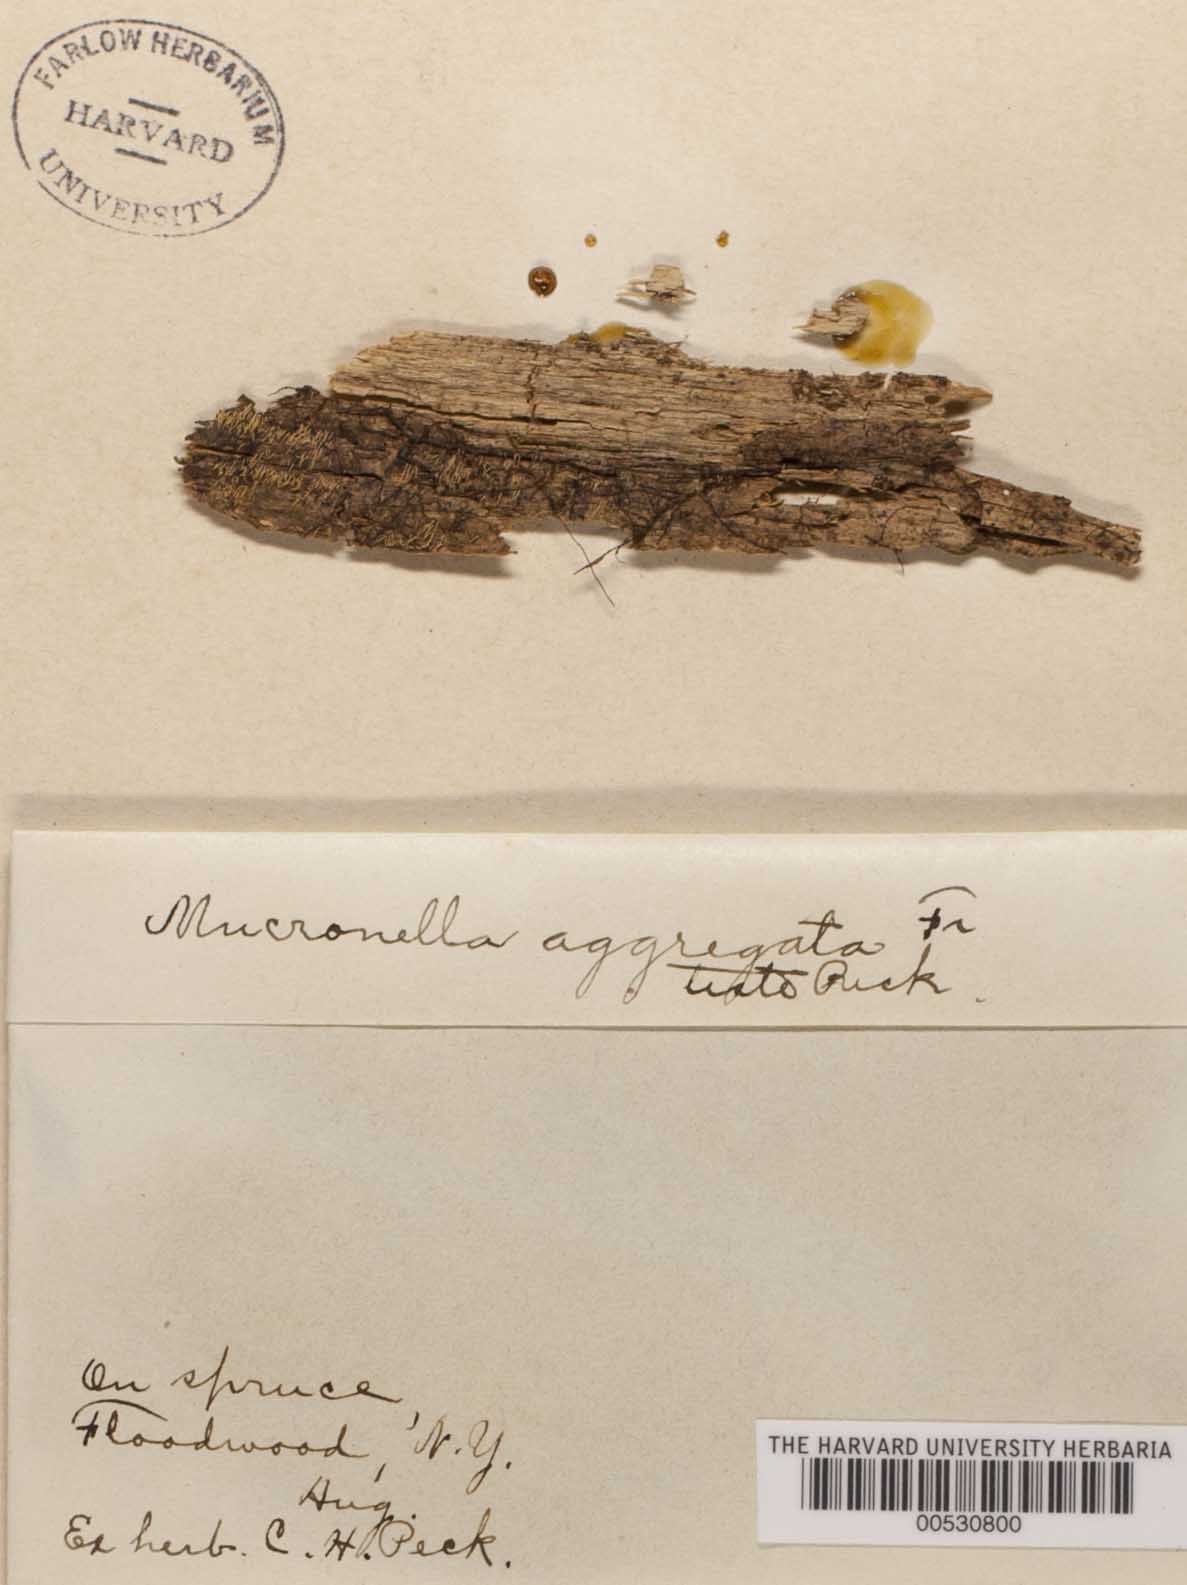 FARLOW HERBARIUM
HARVARD
UNIVERSITY
Mucronella aggregata Fr
teste Peck.
On spruce,
Floodwood, N.Y.
Aug.
Ex herb. C. H. Peck.
THE HARVARD UNIVERSITY HERBARIA
00530800